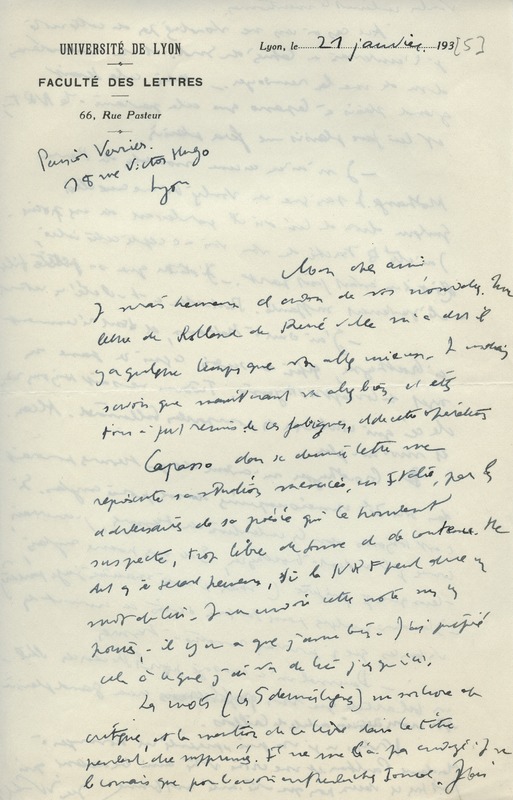 UNIVERSITÉ DE LYON
FACULTÉ DES LETTRES
66, Rue Pasteur
Lyon, le 21 janvier 193[5]
Pension Verrier.
78 rue Victor Hugo
Lyon
Mon cher ami
Je serais heureux d'avoir de vos nouvelles. Une
lettre de Rolland de Renéville m'a dit il
y a quelque temps que vous alliez mieux. Je voudrais
savoir que maintenant vous allez bien, et êtes
tout à fait remis de ces fatigues, et de cette opération
Capasso dans sa dernière lettre me
représente sa situation menacée, en Italie, par les
adversaires de sa poésie qui le trouvent
suspecte, trop libre de forme et de contenu. Il me
dit qu'il serait heureux, si la NRF peut dire un
mot de lui. Je vous envoie cette note sur ses
poèmes, - il y en a que j'aime bien. J'ai préféré
cela à ce que j'ai vu de lui jusqu'ici.
Les mots (les 5 dernières lignes) sur
critique, et la mention de ce livre dans le titre
peuvent être supprimés. Il ne me l'a pas envoyé. Je ne
le connais que pour l'avoir